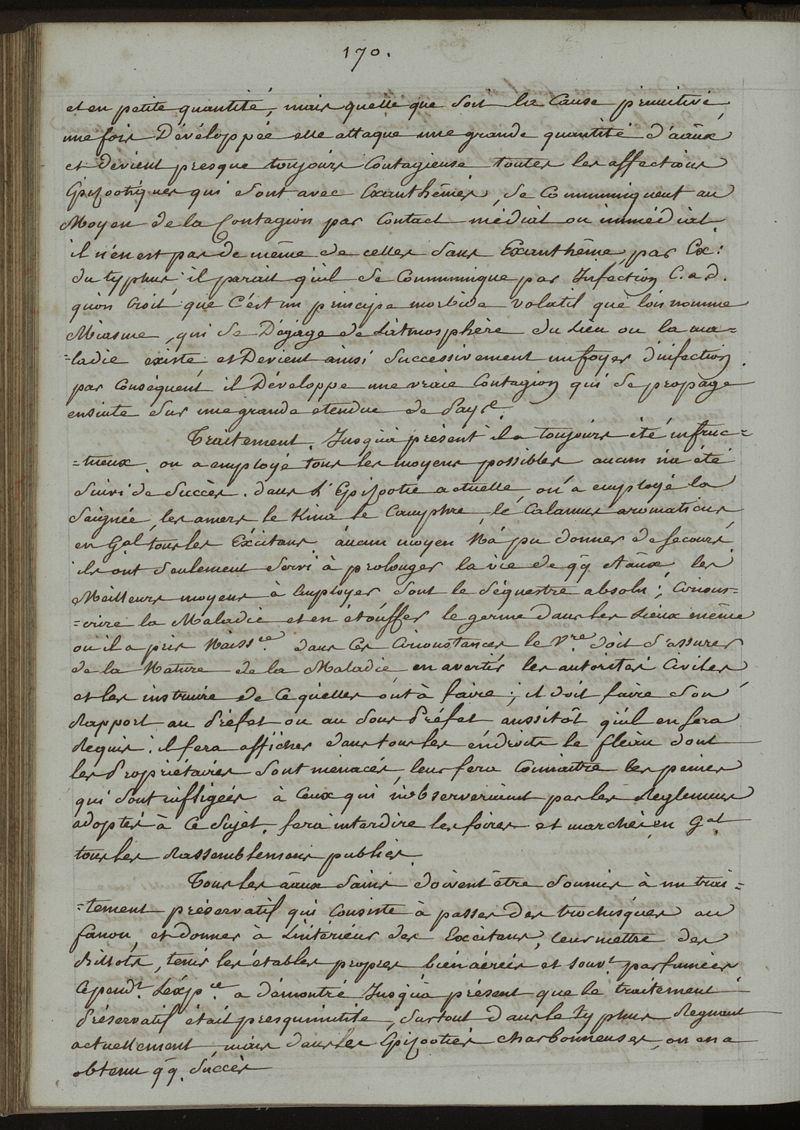 170.
et en petite quantité, mais quelle que soit la Cause primitive,
une fois Dévéloppée elle attaque une grande quantité d'aāux
et devient presque toujours Contagieuse toutes les affections
Épizootiques qui sont avec Exanthêmes, se Communiquent au
Moyen de la Contagion par Contact médiat ou immédiat
il n'en est pas de même de celles sans Exanthême, par Ex:
du typhus il parait qu'il se Communique par Infection C.a.d.
qu'on Croit que C'est un principe morbide volatil que l'on nomme
Miasme, qui se Dégage de l'atmosphère du lieu ou la ma=
=ladie existe et Devient ainsi successivement un foyer d'infection.
par Conséquent il Développe une vraie Contagion qui se propage
ensuite sur une grande etendue de Pays.
Traitement. Jusqu'à présent il a toujours été infruc=
=tueux. on a employé tous les moyens possibles aucun n'a été
suivi de succès. dans l'Epizotie actuelle on a employé la
saignée, les amers le Kina le Camphre, le Calamus aromaticus
en Gal tous les Excitans. aucun moyen n'a pu donner de secours
ils ont seulement servi à prolonger la vie de qq aāux les
Meilleurs moyens à Employer sont le séquestre absolu; Circons=
=crire la Maladie et en étouffer le germe dans les Lieux même
ou il a pris Naissce. dans Ces Circonstances le Vre. doit s'assurer
de la Nature de la Maladie, en avertir les autorités Civiles
et les instruire de Ce qu'elles ont à faire; il doit faire son
Rapport au Préfet ou au sous Préfet aussitôt qu'il en sera
Requis. il fera afficher dans tous les éndroits le fléau dont
les Propriétaires sont menacés, leur fera Connaitre les peines
qui sont infligées à Ceux qui n'observeraient pas les Reglemens
adoptés à Ce sujet. fera interdire les foires et marchés, en Gal
tous les Rassemblemens publics.
Tous les aāux sains doivent être soumis à un trai=
=tement préservatif qui Consiste à passer des trochisques au
fanon, et donner à l'intérieur des Excitans, leur mettre des
Billots, tenir les étables propres bien aérées et souvt. parfumées
Cepend.t l'éxp.ce a démontré Jusqu'à présent que le traitement
Préservatif était presqu'inutile, surtout dans le Typhus Regnant
actuellement, mais dans les Epizooties charbonneuses, on en a
obtenu qq. succès